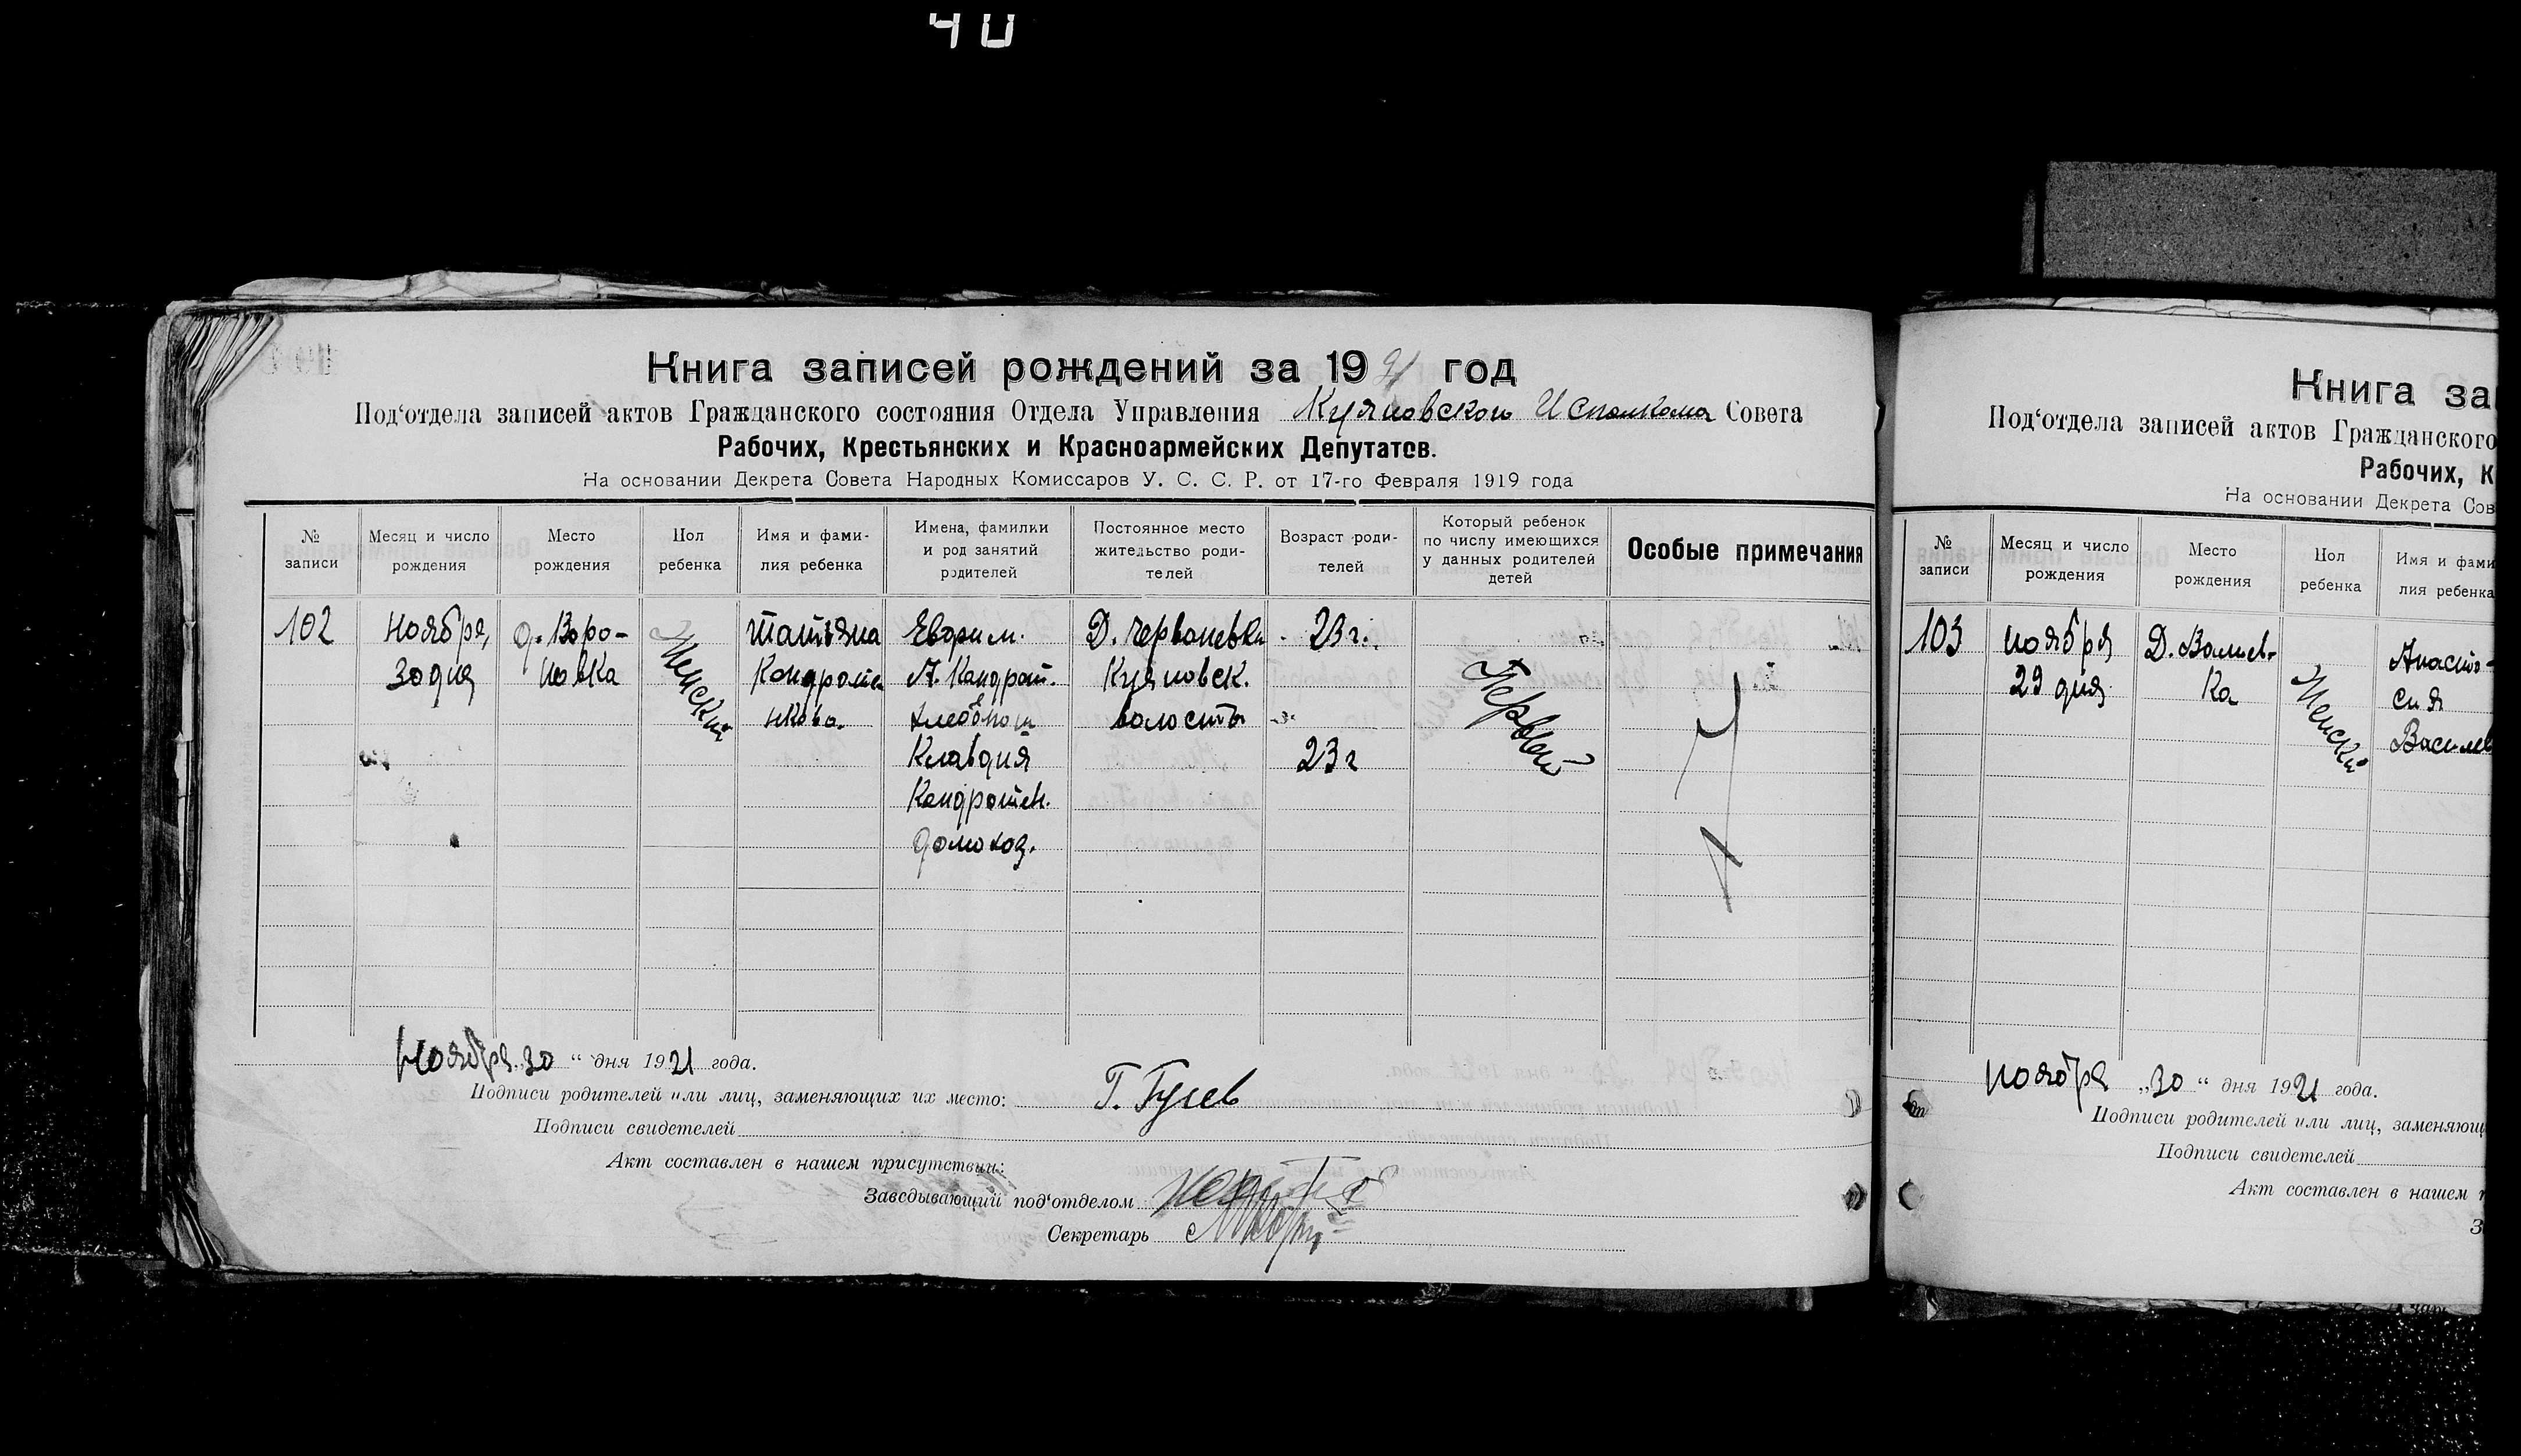 40
Книга записей рождений за 1921 год
Под‘отдела записей актов Гражданского состояния Отдела Управления Куяновского Исполкома Совета
Рабочих, Крестьянских и Красноармейских Депутатов.
На основании Декрета Совета Народных Комиссаров У. С. С. Р. от 17-го Февраля 1919 года
№ записи
Месяц и число рождения
Место рождения
Пол ребенка
Имя и фами-
лия ребенка
Имена, фамилии
и род занятий
родителей
Постоянное место
жительство роди-
телей
Возраст роди-
телей
Который ребенок
по числу имеющихся
у данных родителей
детей
Особые примечания
102
Ноября,
30 дня
д. Воро-
новка
Женский
Татьяна
Кондрате
нкова.
Ефрим.
А. Кандрат.
хлебопаш
Клавдия
Кондратен.
домохоз.
Д.
Куяновск.
волости
23 г.
23 г
Первый
Ноября 30 “ дня 1921 года.
Подписи родителей или лиц, заменяющих их место: Г. Гусев
Подписи свидетелей
Акт составлен в нашем присутствии:
Заведывающий под‘отделом
Секретарь
Книга за
Под‘отдела записей актов Гражданского
Рабочих, К
На основании Декрета Сов
№ записи
Месяц и число
рождения
Место
рождения
Пол
ребенка
Имя и фами
лия ребенка
103
ноября
29 дня
Д.
ка
Женский
Анаста-
сия
Василев
ноября „30“ дня 1921 года.
Подписи родителей или лиц, заменяющ
Подписи свидетелей
Акт составлен в нашем п
З